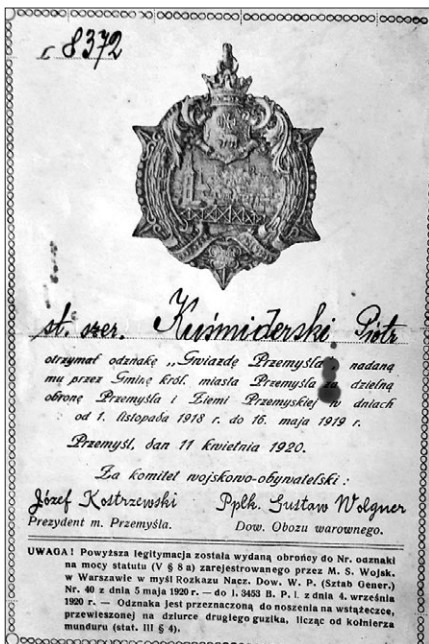 L 8372
st. szer. Kuśmiderski Piotr
otrzymał odznakę „Gwiazdę Przemyśla", nadaną
mu przez Gminę król. miasta Przemyśla za dzielną
obronę Przemyśla i Ziemi Przemyskiej w dniach
od 1. listopada 1918 r. do 16. maja 1919 r.
Przemyśl, dan 11 kwietnia 1920.
Za komitet wojskowo-obywatelski :
Józef Kostrzewski Ppłk. Gustaw Wolgner
Prezydent m. Przemyśla. Dow. Obozu warownego.
UWAGA! Powyższa legitymacja została wydaną obrońcy do Nr. odznaki
na mocy statutu (V § 8 a) zarejestrowanego przez M. S. Wojsk.
w Warszawie w myśl Rozkazu Nacz. Dow. W. P. (Sztab Gener.)
Nr. 40 z dnia 5 maja 1920 r. — do l. 3453 B. P. l. z dnia 4. września
1920 r. — Odznaka jest przeznaczoną do noszenia na wstążeczce,
przewieszonej na dziurce drugiego guzika, licząc od kołnierza
munduru (stat. III § 4).